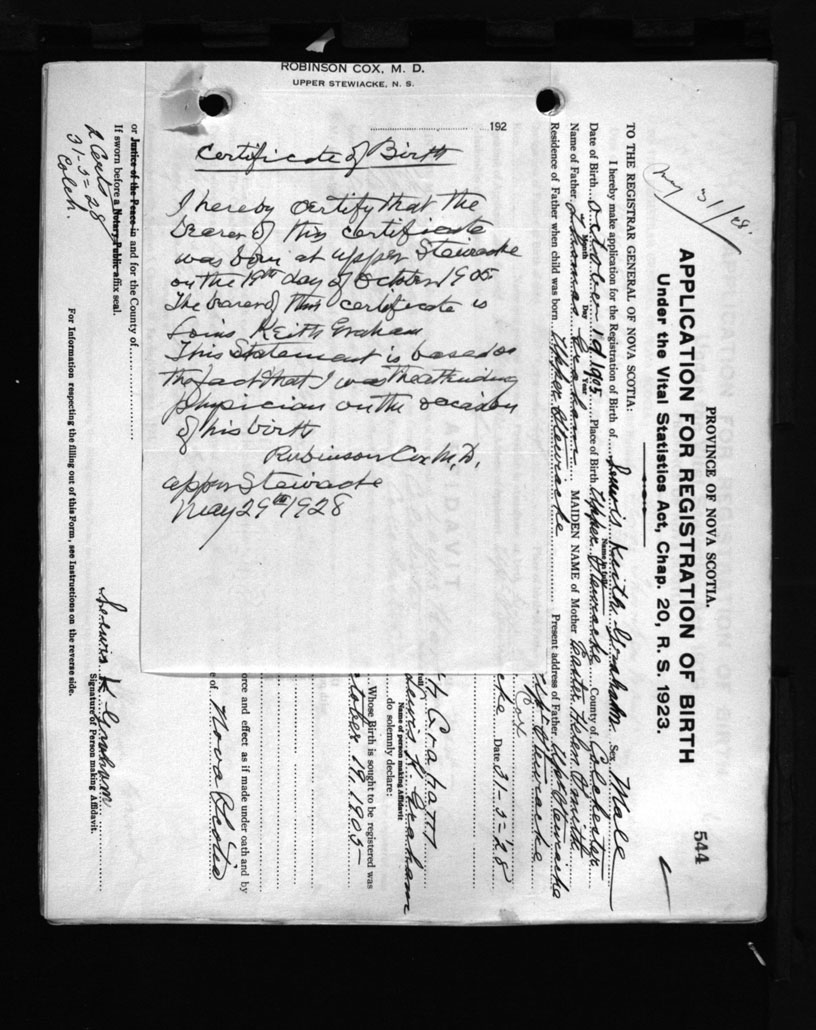 ROBINSON COX, M. D.
UPPER STEWIACKE, N. S.
192
Certificate of Birth
I hereby certify that the
bearer of this certificate
was born at Upper Stewiacke
on the 19th day of October 1905
The bearer of this certificate is
Louis Keith Graham
This Statement is based on
the fact that I was the attending
physician on the occasion
of his birth
Robinson Cox M.D.
Upper Stewiacke
May 29th 1928
May 31/28.
544
PROVINCE OF NOVA SCOTIA.
APPLICATION FOR REGISTRATION OF BIRTH
Under the Vital Statistics Act, Chap. 20, R. S. 1923.
TO THE REGISTRAR GENERAL OF NOVA SCOTIA:
I hereby make application for the Registration of Birth of Lewis Keith Graham Sex Male
Name in full
Date of Birth October 19 1905 Place of Birth Upper Stewiacke County of Colchester
Month Day Year
Name of Father Thomas Graham MAIDEN NAME of Mother Helen Smith
Residence of Father when child was born Upper Stewiacke Present address of Father Up. Stewiacke
Up. Stewiacke
Cox
cke Date 31-5-'28
K Graham
Lewis K. Graham
Name of person making Affidavit
do solemnly declare:
Whose Birth is sought to be registered was
ctober 19, 1905
orce and effect as if made under oath and by
e of Nova Scotia
Lewis K Graham
Signature of Person making Affidavit.
or Justice of the Peace in and for the County of
If sworn before a Notary Public affix seal.
2 Cents
31-5-28
Colch.
For Information respecting the filling out of this Form, see Instructions on the reverse side.